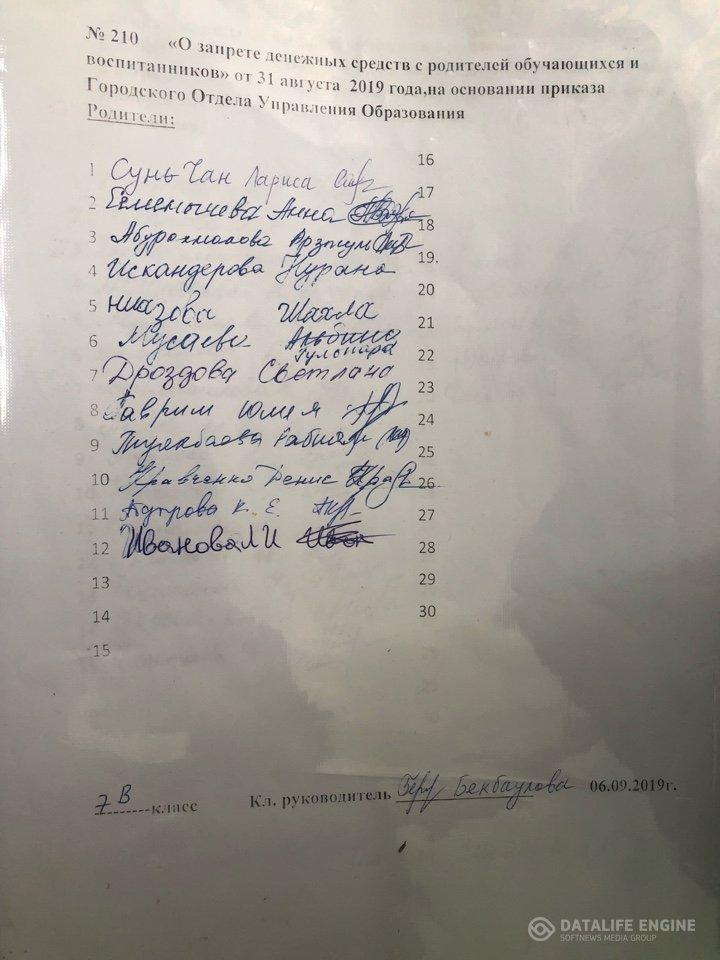 № 210 «О запрете денежных средств с родителей обучающихся и
воспитанников» от 31 августа 2019 года,на основании приказа
Городского Отдела Управления Образования
Родители:
1 Сунь Чан Лариса
2 Анна
3 Абурахманова
4 Искандерова Нурана
5 Ниязова Шахла
6 Мусаева Альбина
Гулспара
7 Дроздова Светлана
8 Гаврим Юлия
9
10 Кравченко Денис
11 К. Е.
12 Иванова Л И
13
14
15
16
17
18
19.
20
21
22
23
24
25
26
27
28
29
30
7 В класс Кл. руководитель Бекбаулова 06.09.2019г.
DATALIFE ENGINE
SOFTNEWS MEDIA GROUP